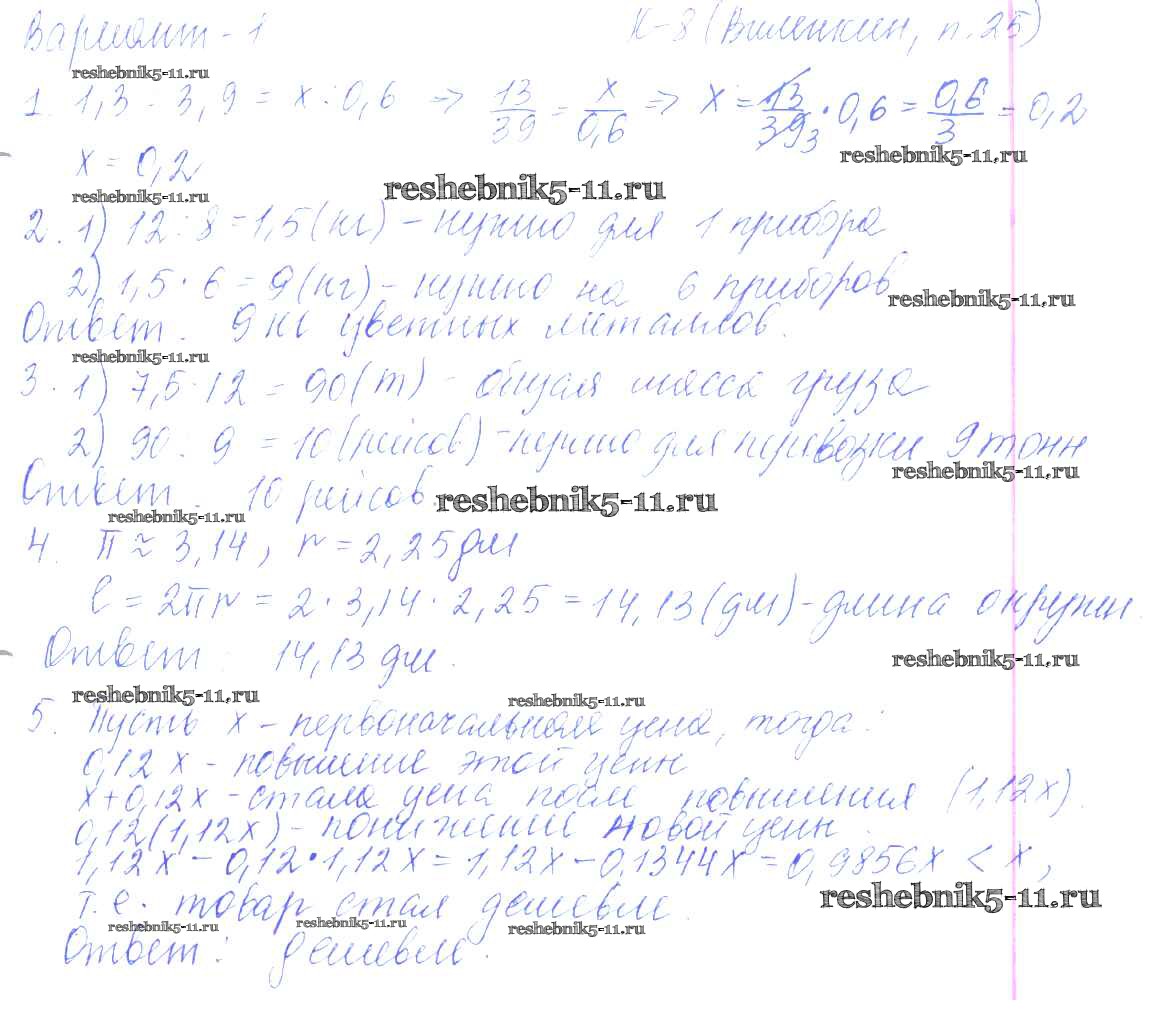 Вариант - 1 К-8 (Виленкин, п. 25)
reshebnik5-11.ru
1. 1,3 : 3,9 = x : 0,6 => 13/39 = x/0,6 => x = 13/39 3 · 0,6 = 0,6/3 = 0,2
reshebnik5-11.ru
x = 0,2
reshebnik5-11.ru
reshebnik5-11.ru
2. 1) 12 : 8 = 1,5 (кг) - нужно для 1 прибора
2) 1,5 · 6 = 9 (кг) - нужно на 6 приборов
reshebnik5-11.ru
Ответ: 9 кг цветных металлов.
reshebnik5-11.ru
3. 1) 7,5 · 12 = 90 (т) - общая масса груза
2) 90 : 9 = 10 (рейсов) - нужно для перевозки 9 тонн
reshebnik5-11.ru
Ответ: 10 рейсов.
reshebnik5-11.ru
reshebnik5-11.ru
4. π ≈ 3,14, r = 2,25 дм
l = 2πr = 2 · 3,14 · 2,25 = 14,13 (дм) - длина окружн.
Ответ: 14,13 дм.
reshebnik5-11.ru
reshebnik5-11.ru
reshebnik5-11.ru
5. Пусть x - первоначальная цена, тогда:
0,12x - повышение этой цены
x + 0,12x - стала цена после повышения (1,12x).
0,12(1,12x) - понижение новой цены.
1,12x - 0,12 · 1,12x = 1,12x - 0,1344x = 0,9856x < x,
reshebnik5-11.ru
т.е. товар стал дешевле.
reshebnik5-11.ru
reshebnik5-11.ru
reshebnik5-11.ru
Ответ: дешевле.